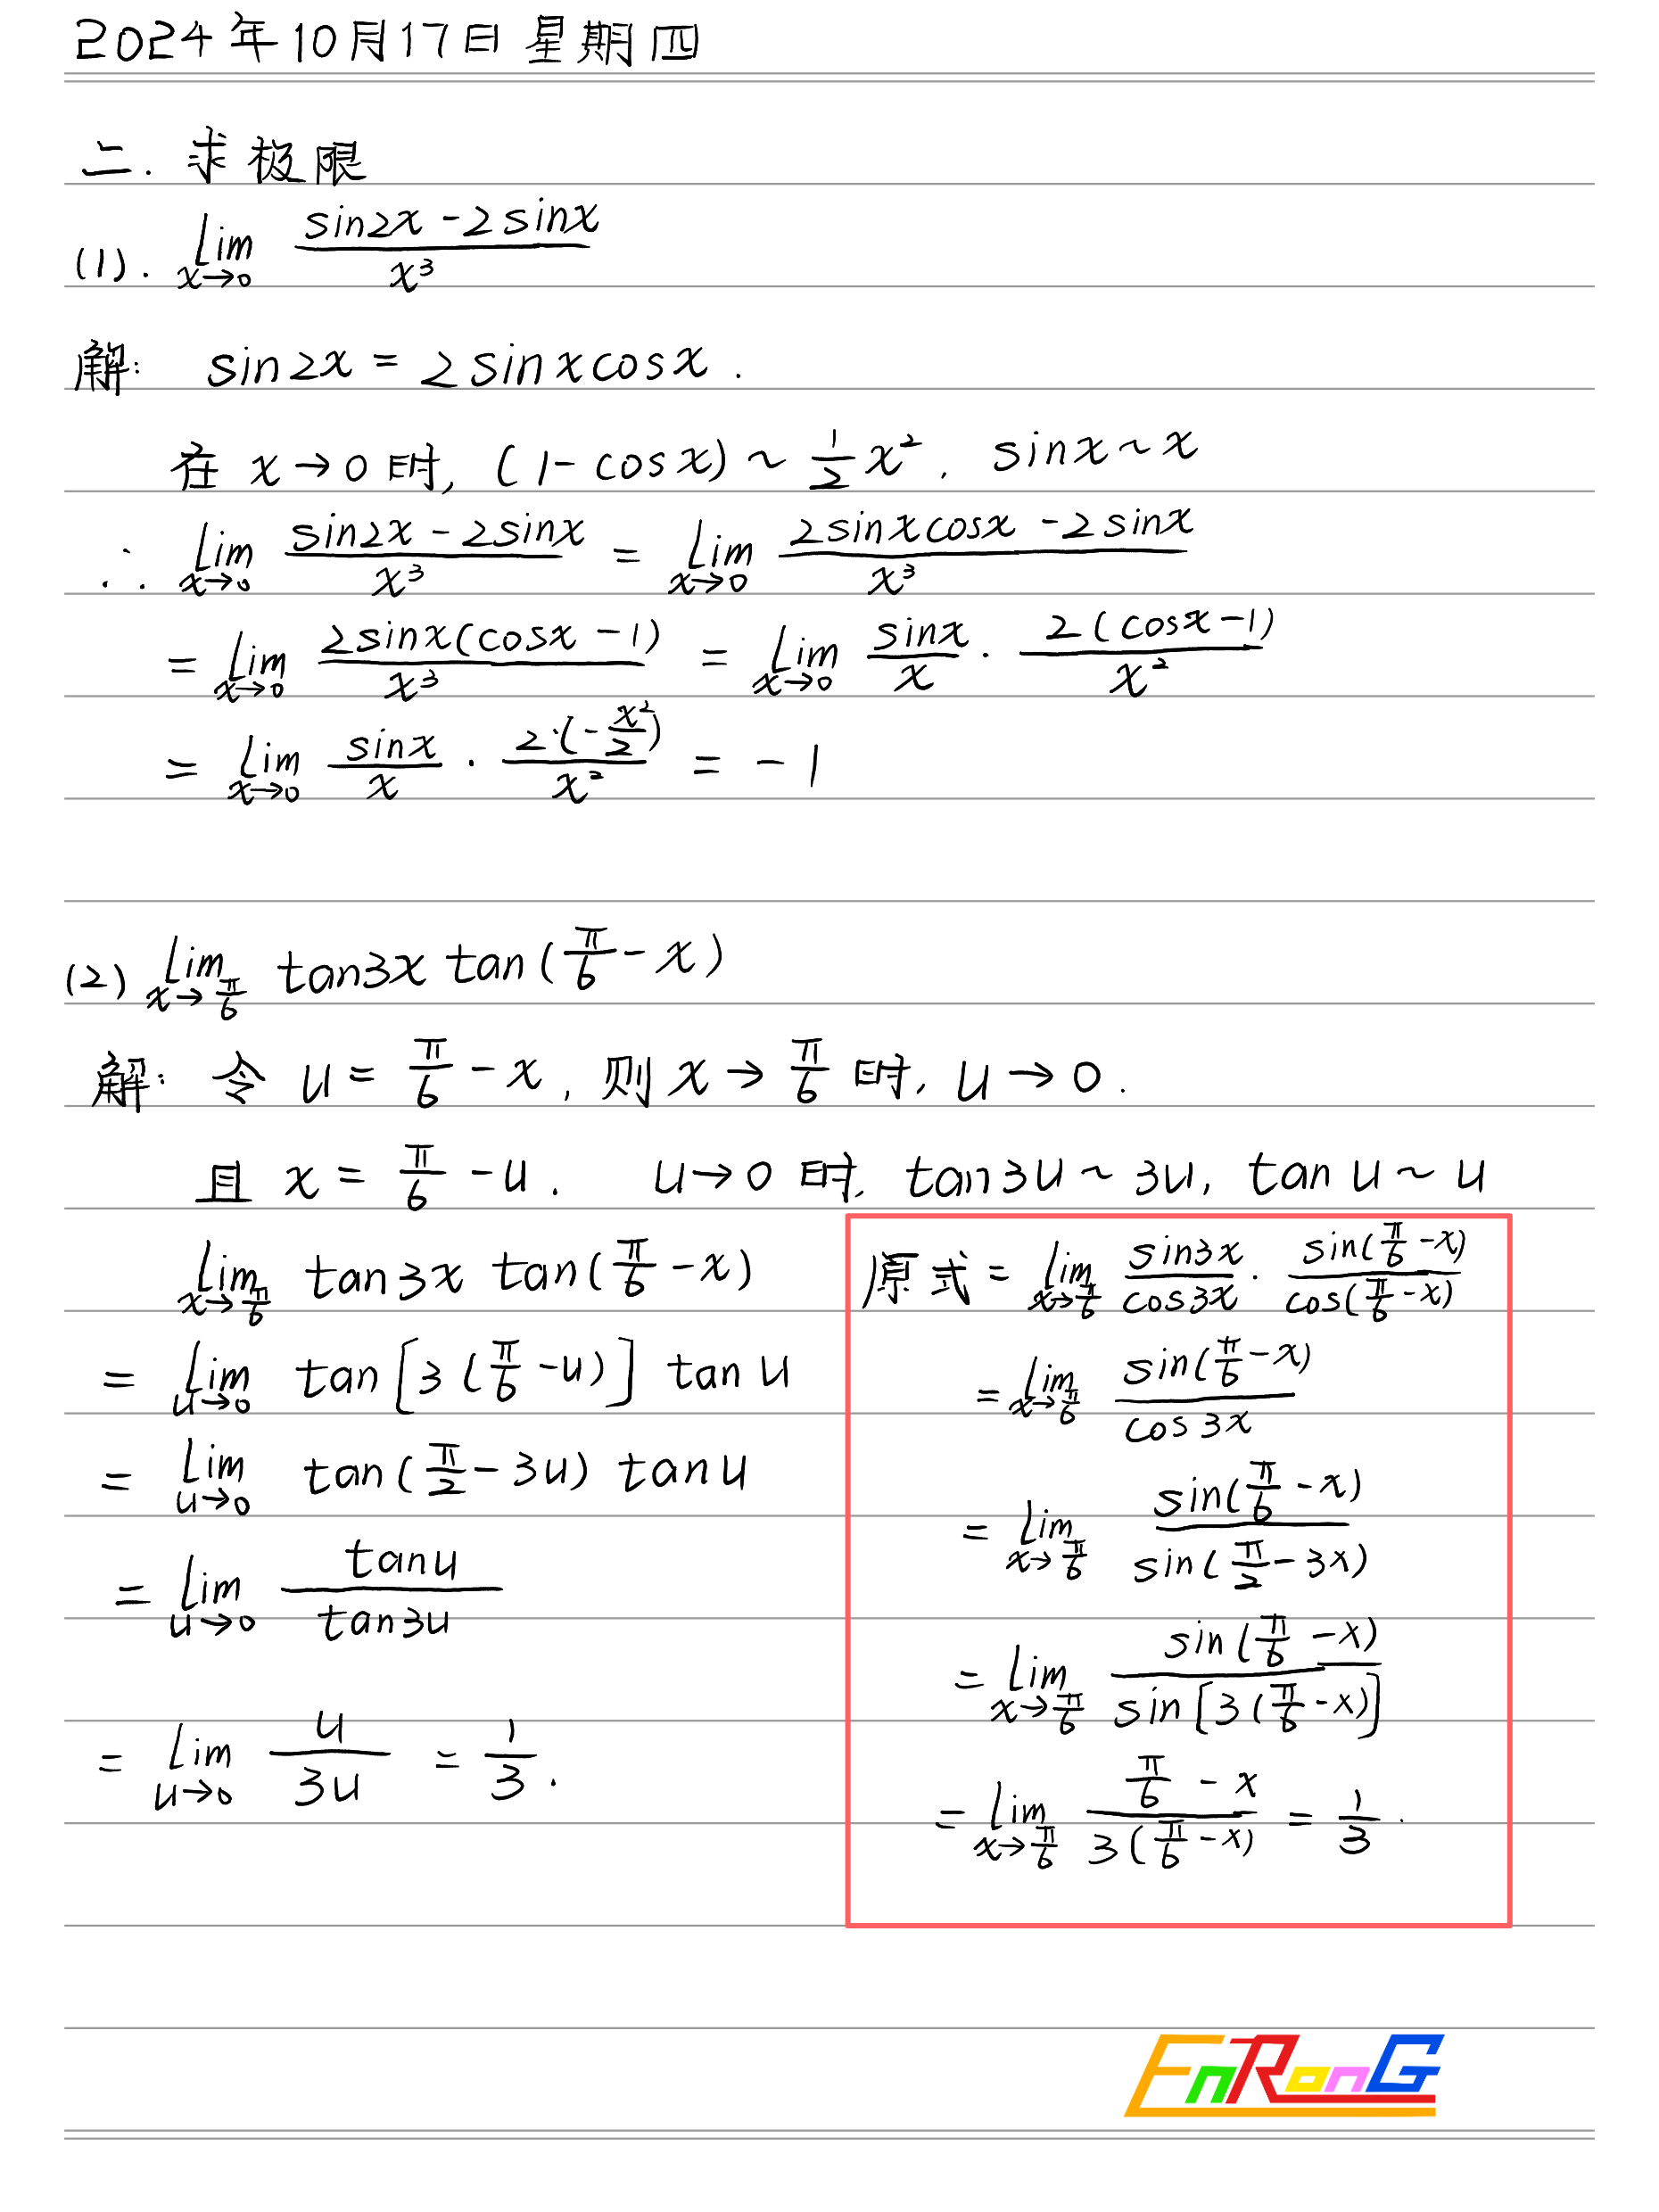 2024年10月17日 星期四
二. 求极限
(1). lim_{x→0} (sin2x - 2sinx)/x³
解: sin2x = 2sinxcosx.
在 x→0 时, (1-cosx) ~ 1/2 x², sinx ~ x
∴ lim_{x→0} (sin2x - 2sinx)/x³ = lim_{x→0} (2sinxcosx - 2sinx)/x³
= lim_{x→0} 2sinx(cosx - 1)/x³ = lim_{x→0} sinx/x · 2(cosx-1)/x²
= lim_{x→0} sinx/x · 2·(-x²/2)/x² = -1
(2) lim_{x→π/6} tan3x tan(π/6 - x)
解: 令 u = π/6 - x, 则 x→π/6 时, u→0.
且 x = π/6 - u. u→0 时, tan3u ~ 3u, tan u ~ u
lim_{x→π/6} tan3x tan(π/6 - x)
= lim_{u→0} tan[3(π/6 - u)] tan u
= lim_{u→0} tan(π/2 - 3u) tan u
= lim_{u→0} tanu/tan3u
= lim_{u→0} u/3u = 1/3.
原式 = lim_{x→π/6} sin3x/cos3x · sin(π/6 - x)/cos(π/6 - x)
= lim_{x→π/6} sin(π/6 - x)/cos3x
= lim_{x→π/6} sin(π/6 - x)/sin(π/2 - 3x)
= lim_{x→π/6} sin(π/6 - x)/sin[3(π/6 - x)]
= lim_{x→π/6} (π/6 - x)/3(π/6 - x) = 1/3.
EnRonG